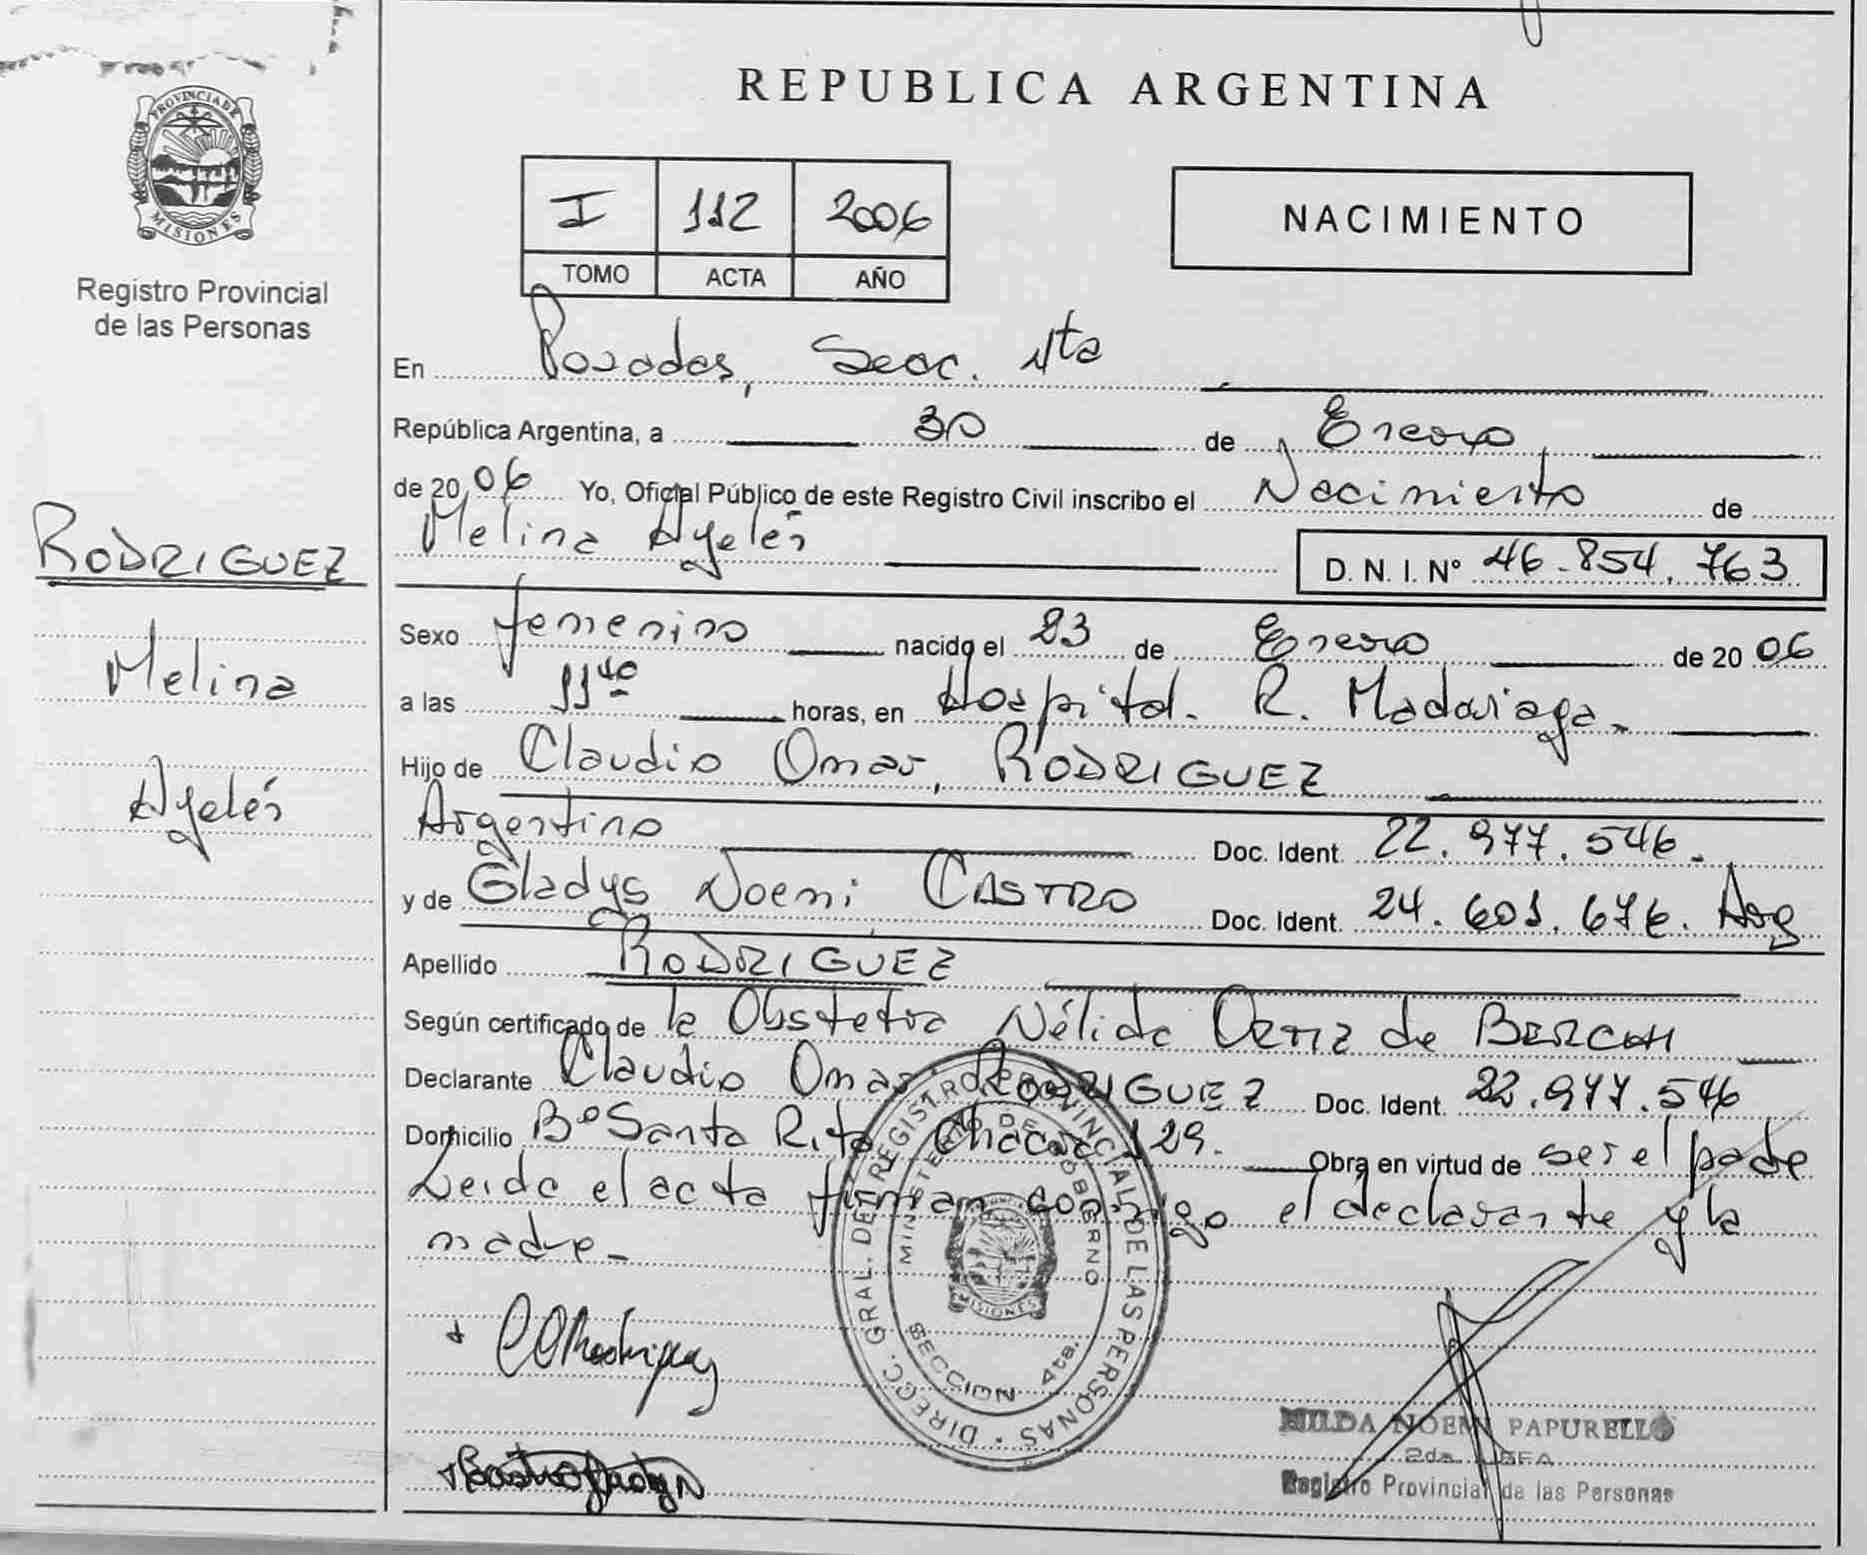 PROVINCIA DE
MISIONES
Registro Provincial
de las Personas
RODRIGUEZ
Melina
Ayelén
REPUBLICA ARGENTINA
I 112 2006
TOMO ACTA AÑO
NACIMIENTO
En Posadas, Secc. 4ta
República Argentina, a 30 de Enero
de 2006 Yo, Oficial Público de este Registro Civil inscribo el Nacimiento de
Melina Ayelén D. N. I. N° 46.854.763
Sexo femenino nacido el 23 de Enero de 2006
a las 11 40 horas, en Hospital R. Madariaga
Hijo de Claudio Omar, RODRIGUEZ
Argentino Doc. Ident. 22.977.546.
y de Gladys Noemi CASTRO Doc. Ident. 24.601.676. Arg
Apellido RODRIGUEZ
Según certificado de la Obstetra Nélida ORTIZ de
Declarante Claudio Omar RODRIGUEZ Doc. Ident. 22.977.546
Domicilio B° Santa Rita, Chacra 129. Obra en virtud de ser el padre
Leida el acta firman conmigo el declarante y la
madre_
DIRECC. GRAL. DEL REGISTRO PROVINCIAL DE LAS PERSONAS
MINISTERIO DE GOBIERNO
MISIONES
SECCION 4ta.
CORodriguez
NOEMI PAPURELLO
2da. JEFA
Registro Provincial de las Personas